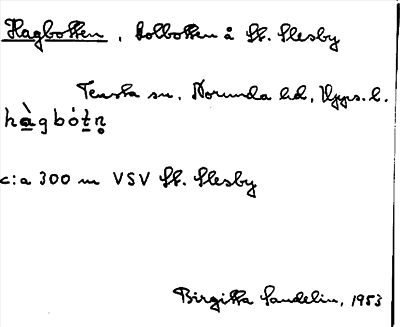 Hagbotten, kolbotten å St. Slesby
Tensta sn, Norunda hd, Upps. l.
hàgbòtn̥
c:a 300 m VSV St. Slesby
Birgitta Sandelin, 1953